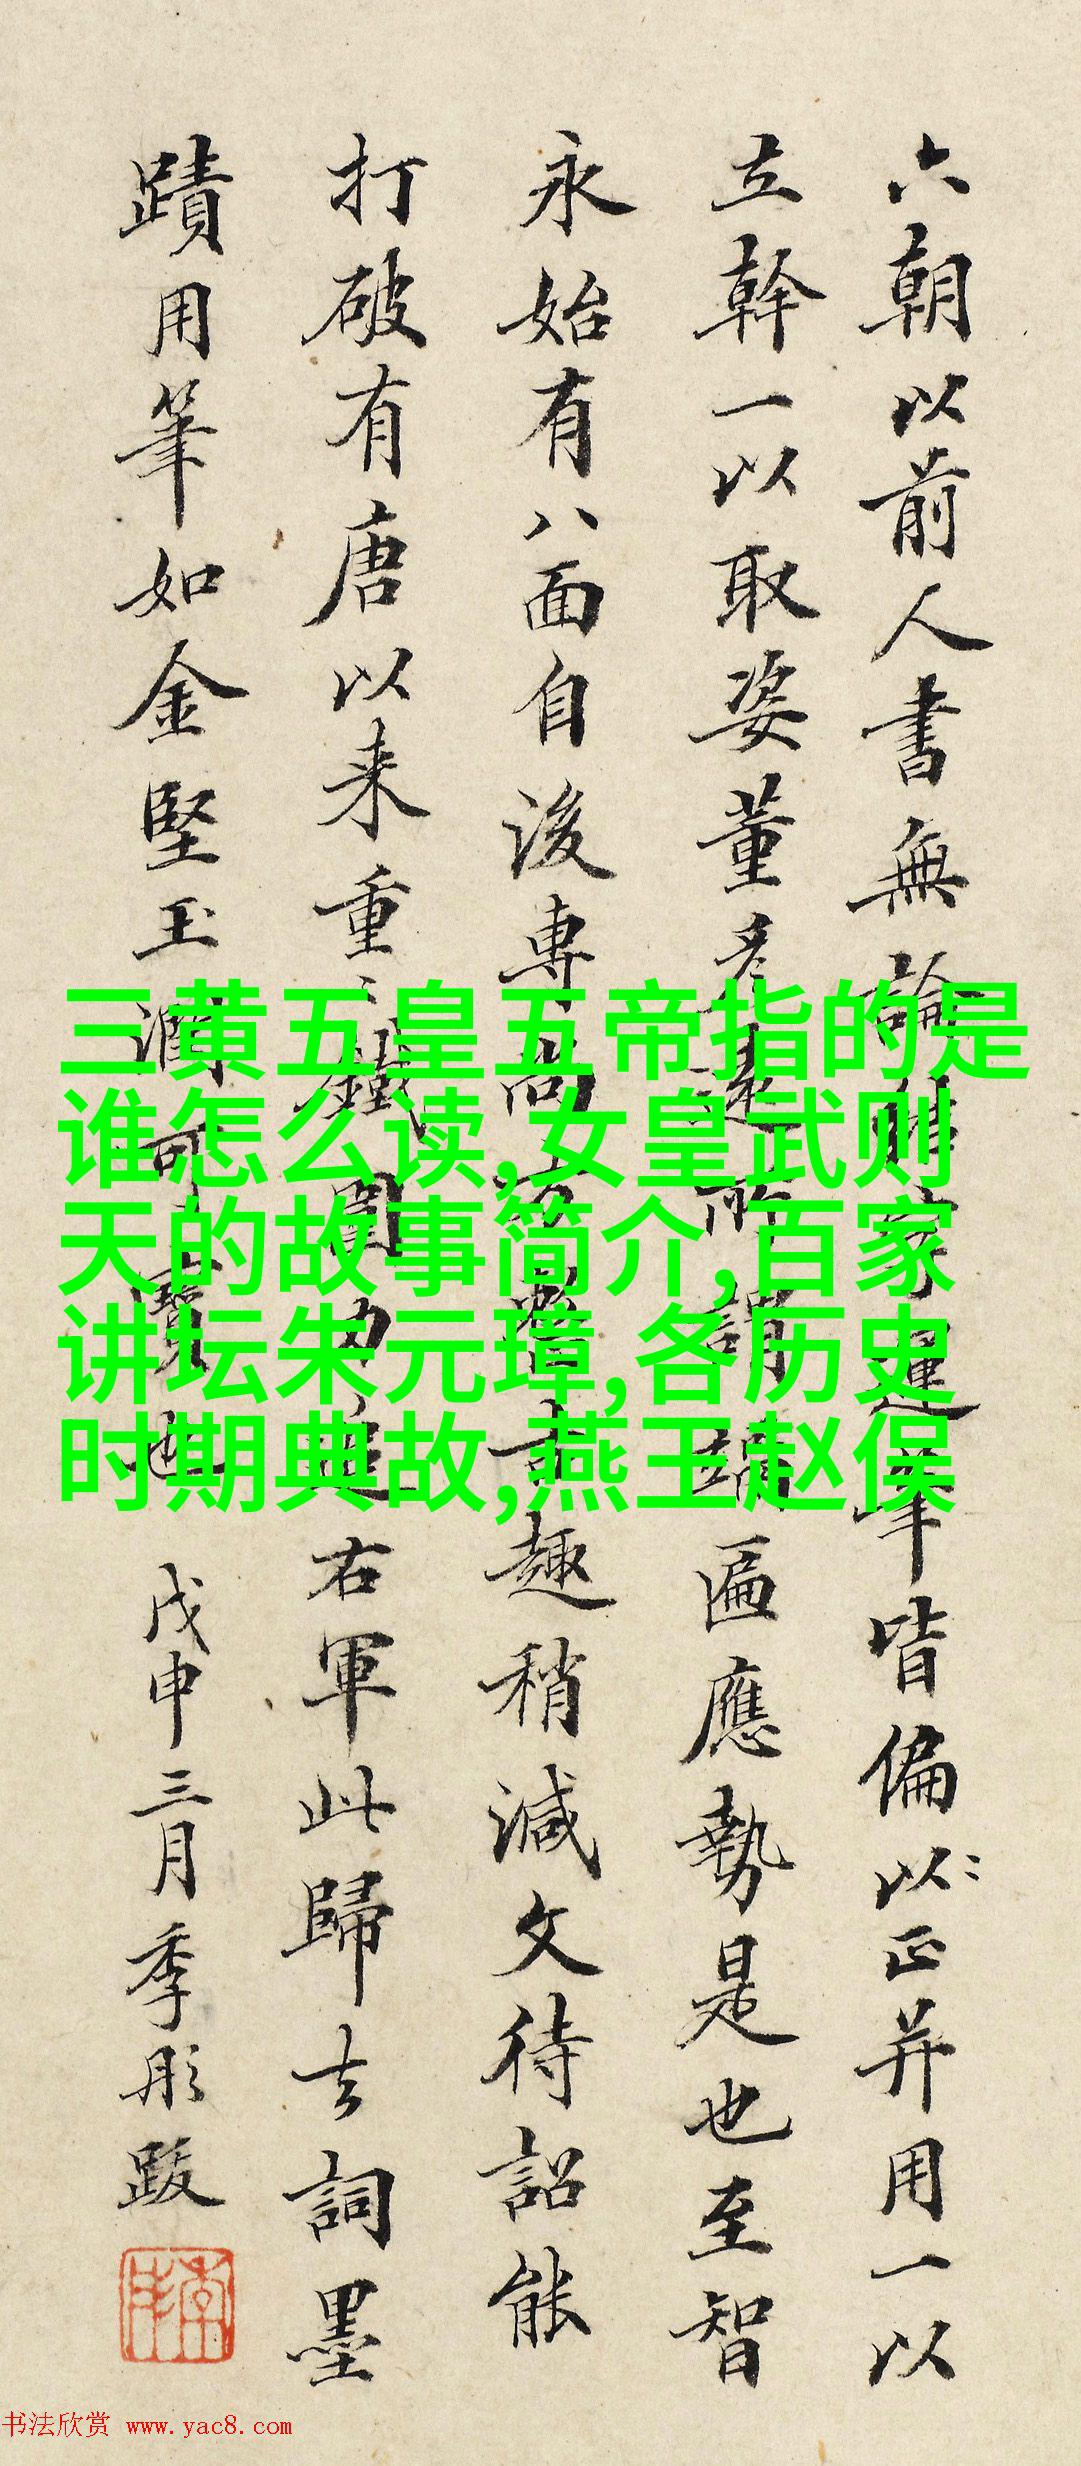 六朝以前人書無論運筆皆偏以正并用一以
立幹一以取姿董彥遠所謂匾應勢是也至智
永始有八面自後專尚古趣稍減文待詔能
打破有唐以来重〻鐵圍力追右軍此歸去詞墨
蹟用筆如金堅玉潤可寶也 戊申三月季彤跋
三黄五皇五帝指的是
谁怎么读,女皇武则
天的故事简介,百家
讲坛朱元璋,各历史
时期典故,燕王赵俣
书法欣赏 www.yac8.com